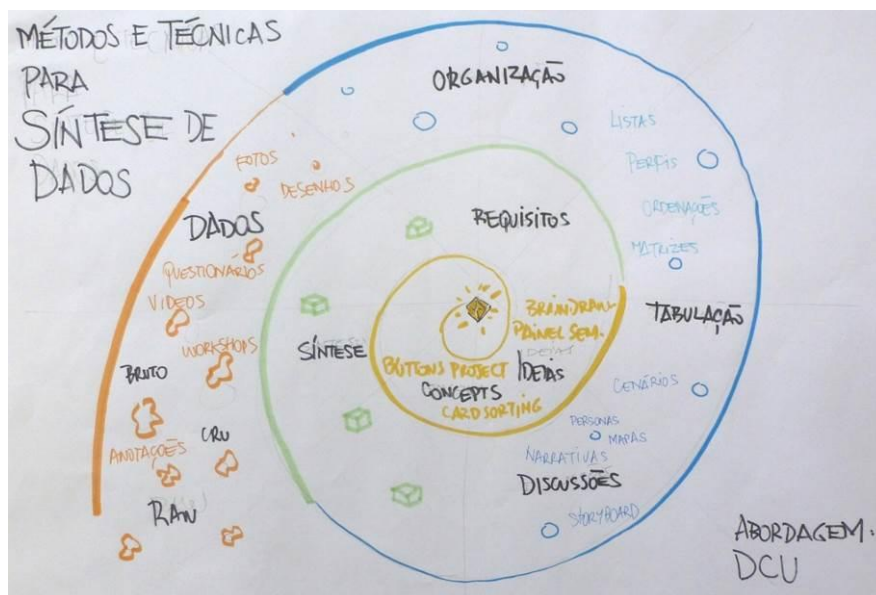 MÉTODOS E TÉCNICAS
PARA
SÍNTESE DE
DADOS
ORGANIZAÇÃO
LISTAS
PERFIS
ORDENAÇÕES
MATRIZES
TABULAÇÃO
CENÁRIOS
PERSONAS
MAPAS
NARRATIVAS
DISCUSSÕES
STORYBOARD
FOTOS
DESENHOS
DADOS
QUESTIONÁRIOS
VIDEOS
WORKSHOPS
BRUTO
CRU
ANOTAÇÕES
RAW
REQUISITOS
SÍNTESE
BRAINDRAW
PAINEL SEM.
IDEIAS
BUTTONS PROJECT
CONCEPTS
CARDSORTING
ABORDAGEM.
DCU